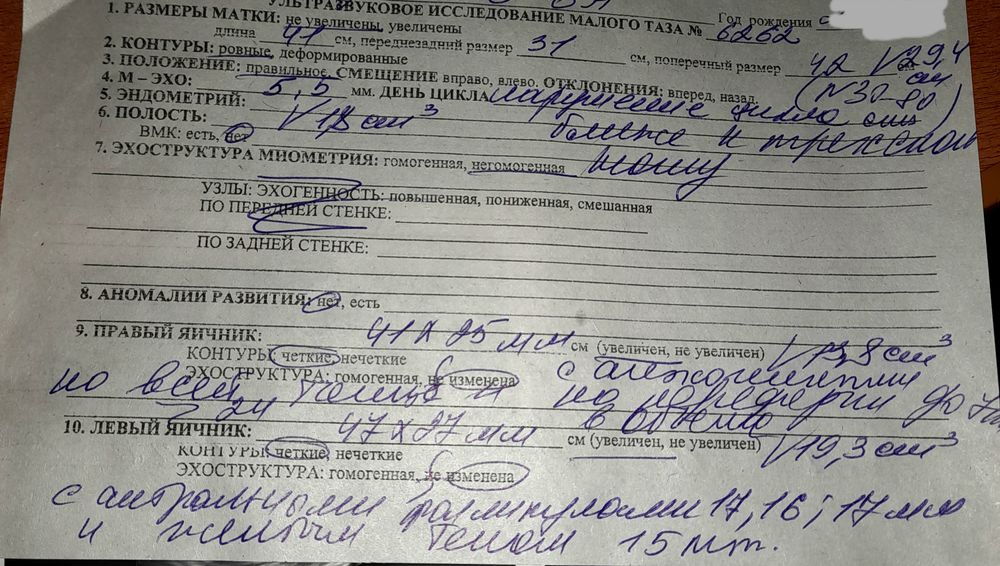 УЛЬТРАЗВУКОВОЕ ИССЛЕДОВАНИЕ МАЛОГО ТАЗА № 6262 Год рождения
1. РАЗМЕРЫ МАТКИ: не увеличены, увеличены
длина 41 см, переднезадний размер 31 см, поперечный размер 42 см V 29,4
2. КОНТУРЫ: ровные, деформированные (N 30-80)
3. ПОЛОЖЕНИЕ: правильное, СМЕЩЕНИЕ вправо, влево, ОТКЛОНЕНИЯ: вперед, назад,
4. М – ЭХО: 5,5 мм. ДЕНЬ ЦИКЛА нарушение цикла
5. ЭНДОМЕТРИЙ: ближе к
6. ПОЛОСТЬ: V 18 см³
ВМК: есть, нет
7. ЭХОСТРУКТУРА МИОМЕТРИЯ: гомогенная, негомогенная
УЗЛЫ: ЭХОГЕННОСТЬ: повышенная, пониженная, смешанная
ПО ПЕРЕДНЕЙ СТЕНКЕ:
ПО ЗАДНЕЙ СТЕНКЕ:
8. АНОМАЛИИ РАЗВИТИЯ: нет, есть
9. ПРАВЫЙ ЯИЧНИК: 41 х 25 мм см (увеличен, не увеличен) V 13,8 см³
КОНТУРЫ: четкие, нечеткие
ЭХОСТРУКТУРА: гомогенная, не изменена с
по всей и по периферии до
в объеме
10. ЛЕВЫЙ ЯИЧНИК: 47 х 27 мм см (увеличен, не увеличен) V 19,3 см³
КОНТУРЫ: четкие, нечеткие
ЭХОСТРУКТУРА: гомогенная, не изменена
с антральными фолликулами 17, 16, 17 мм
и желтым телом 15 мм.